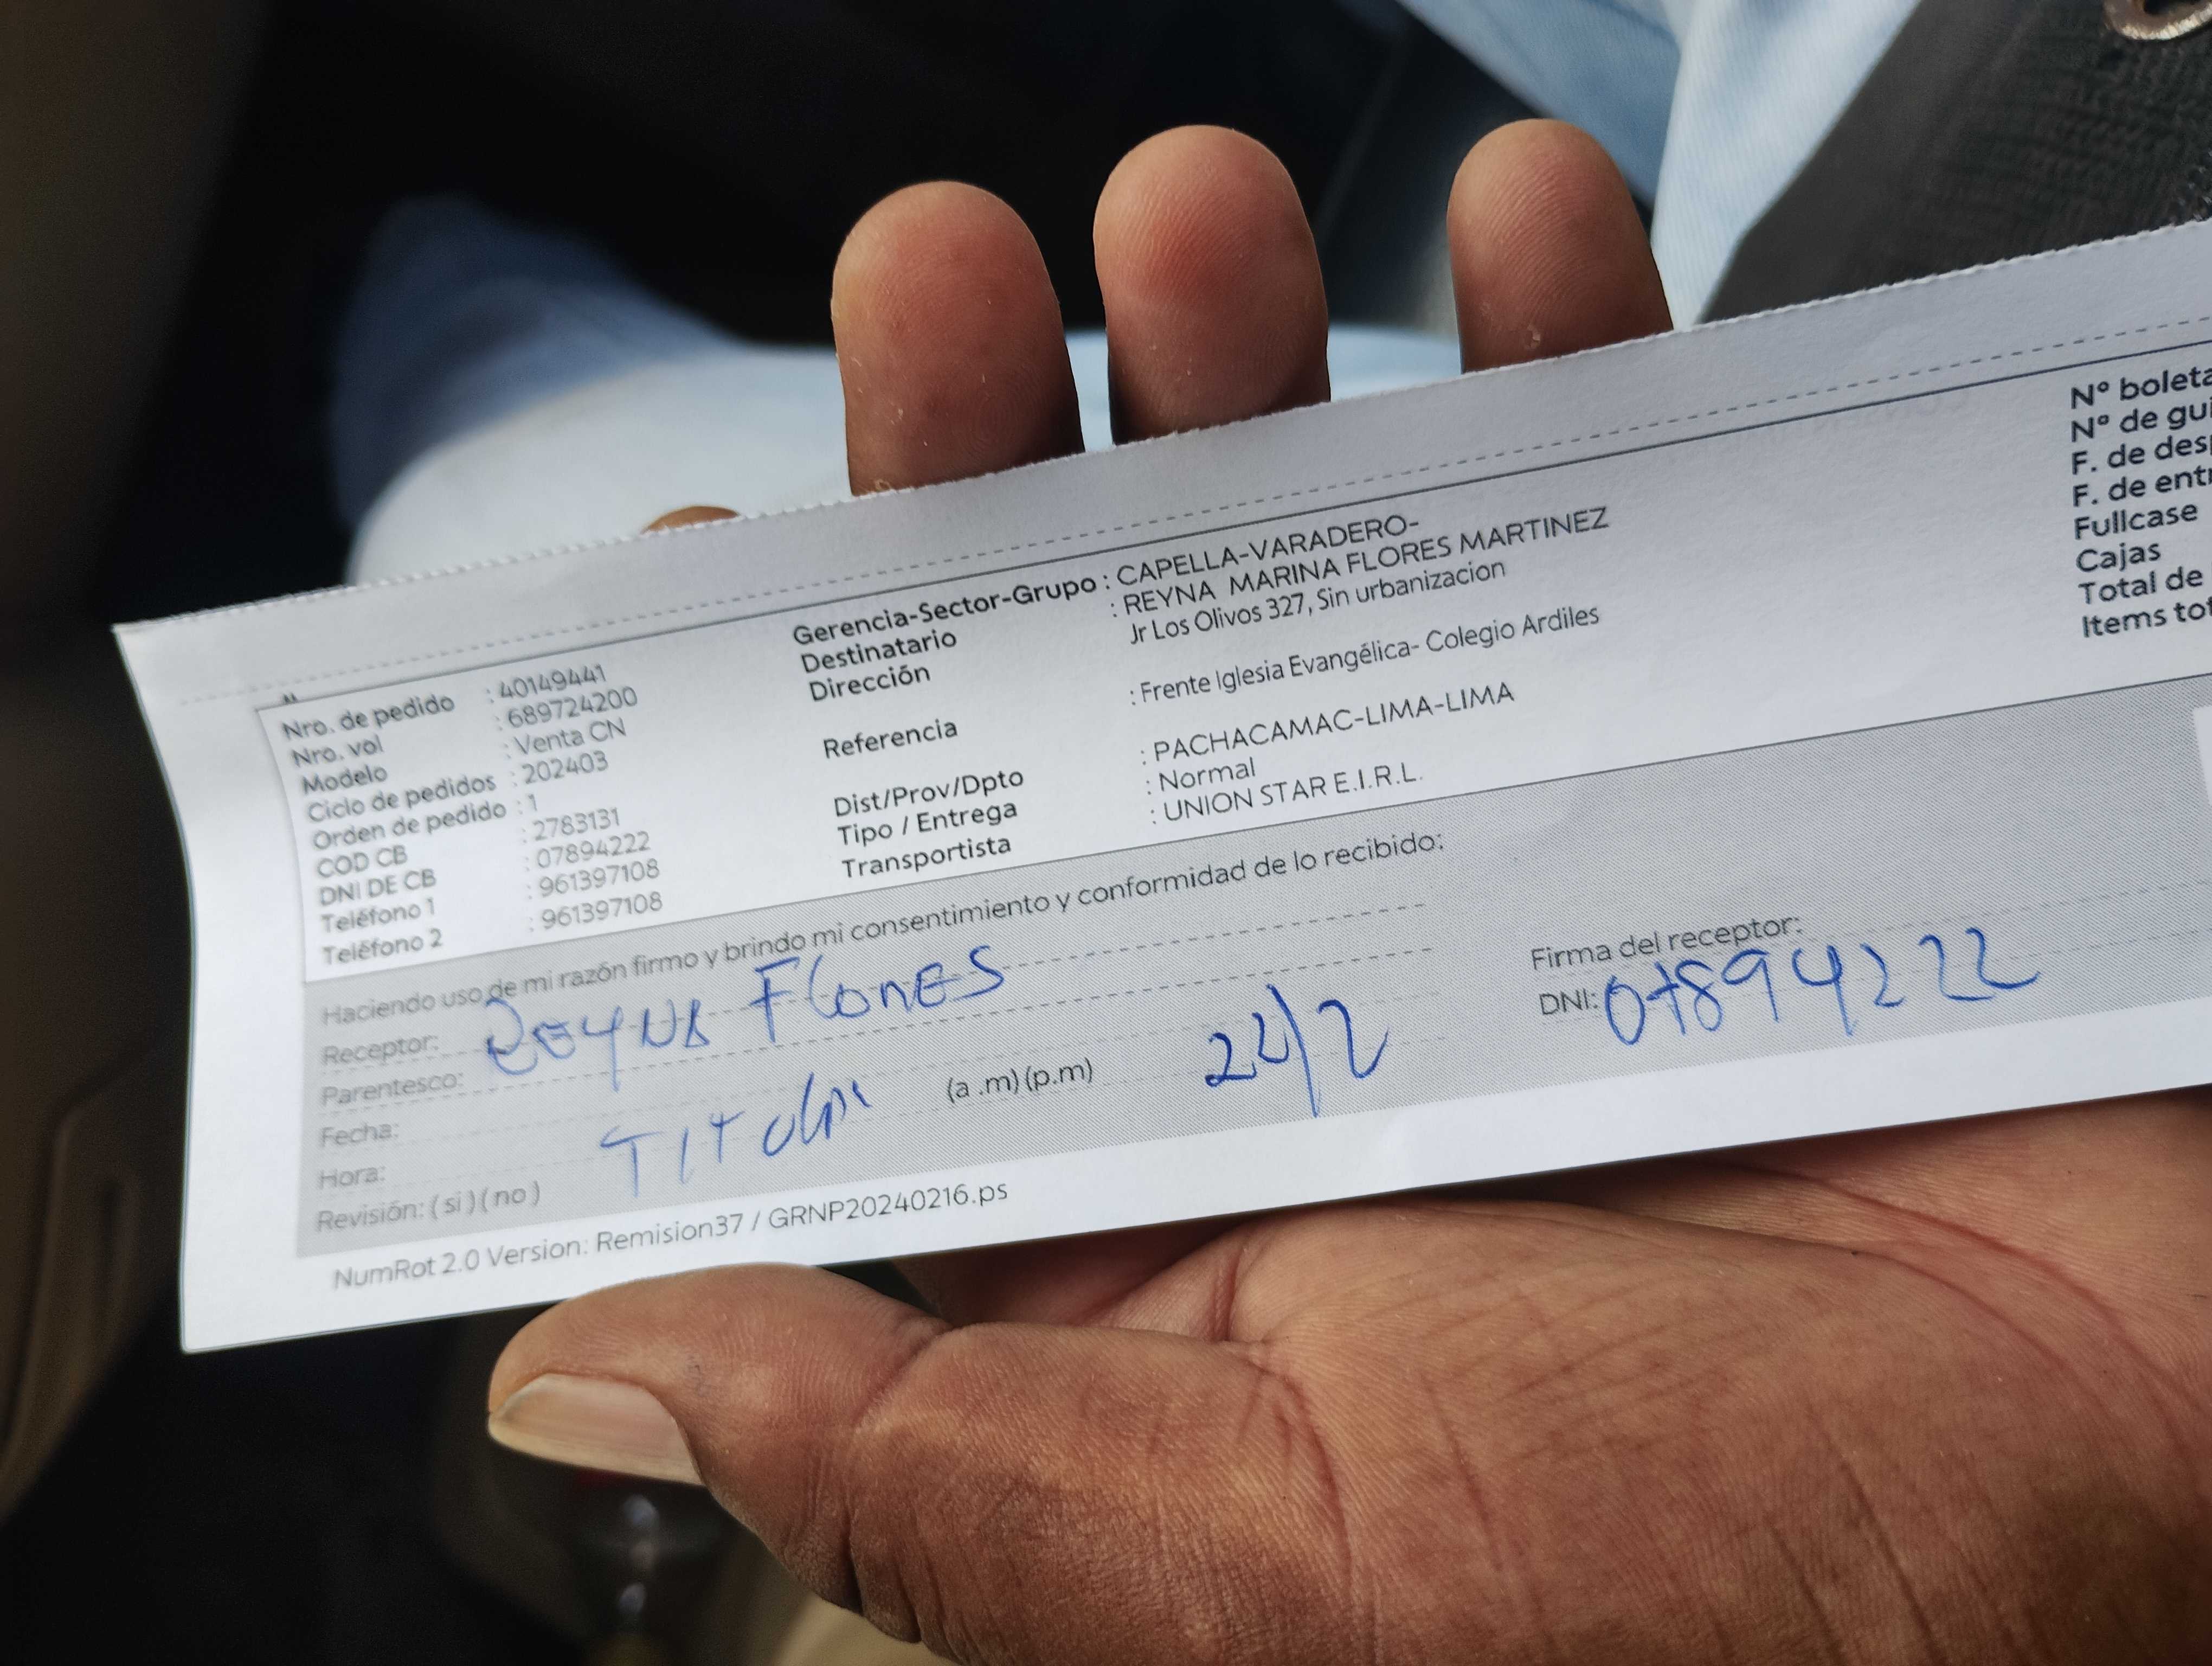 Nro. de pedido : 40149441
Nro. vol : 689724200
Modelo : Venta CN
Ciclo de pedidos : 202403
Orden de pedido : 1
COD CB : 2783131
DNI DE CB : 07894222
Teléfono 1 : 961397108
Teléfono 2 : 961397108
Gerencia-Sector-Grupo : CAPELLA-VARADERO-
Destinatario : REYNA MARINA FLORES MARTINEZ
Dirección Jr Los Olivos 327, Sin urbanizacion
Referencia : Frente Iglesia Evangélica- Colegio Ardiles
Dist/Prov/Dpto : PACHACAMAC-LIMA-LIMA
Tipo / Entrega : Normal
Transportista : UNION STAR E.I.R.L.
Nº boleta
Nº de gui
F. de des
F. de entr
Fullcase
Cajas
Total de
Items tot
Haciendo uso de mi razón firmo y brindo mi consentimiento y conformidad de lo recibido:
Receptor: Reyna Flores
Parentesco:
Fecha: Titular 22/2
Hora: (a .m) (p.m)
Revisión: ( si ) ( no )
Firma del receptor:
DNI: 07894222
NumRot 2.0 Version: Remision37 / GRNP20240216.ps